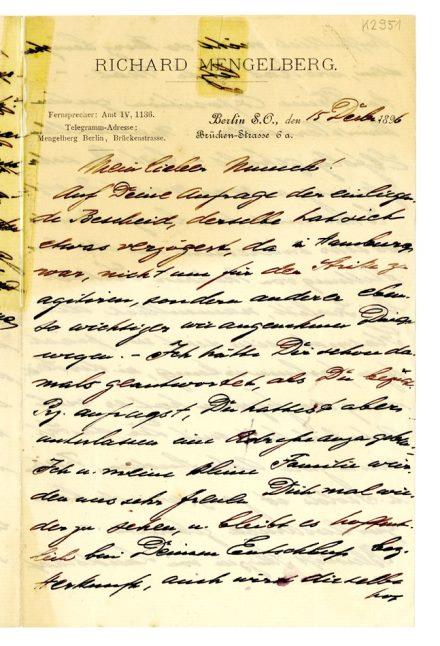 K2951
RICHARD MENGELBERG.
Fernsprecher: Amt IV, 1136.
Telegramm-Adresse:
Mengelberg Berlin, Brückenstrasse.
Berlin S.O., den 15 Decbr 1896
Brücken-Strasse 6 a.
Mein lieber Munch!
Auf Deine Anfrage den einliegen-
de Bescheid, derselbe hat sich
etwas verzögert, da i. Hamburg
war, nicht um für den Strike z.
agitiren, sondern anderer eben-
so wichtiger wie angenehmer Dinge
wegen. – Ich hätte Dir schon da-
mals geantwortet, als Du
anfragst, Du hattest aber
unterlassen eine Adresse anzugeben.
Ich u. meine kleine Familie wür-
den uns sehr freuen Dich mal wie-
der zu sehen, u. bleibt es hoffent-
lich bei Deinem Entschluß bez.
Herkunft, auch wird dieselbe